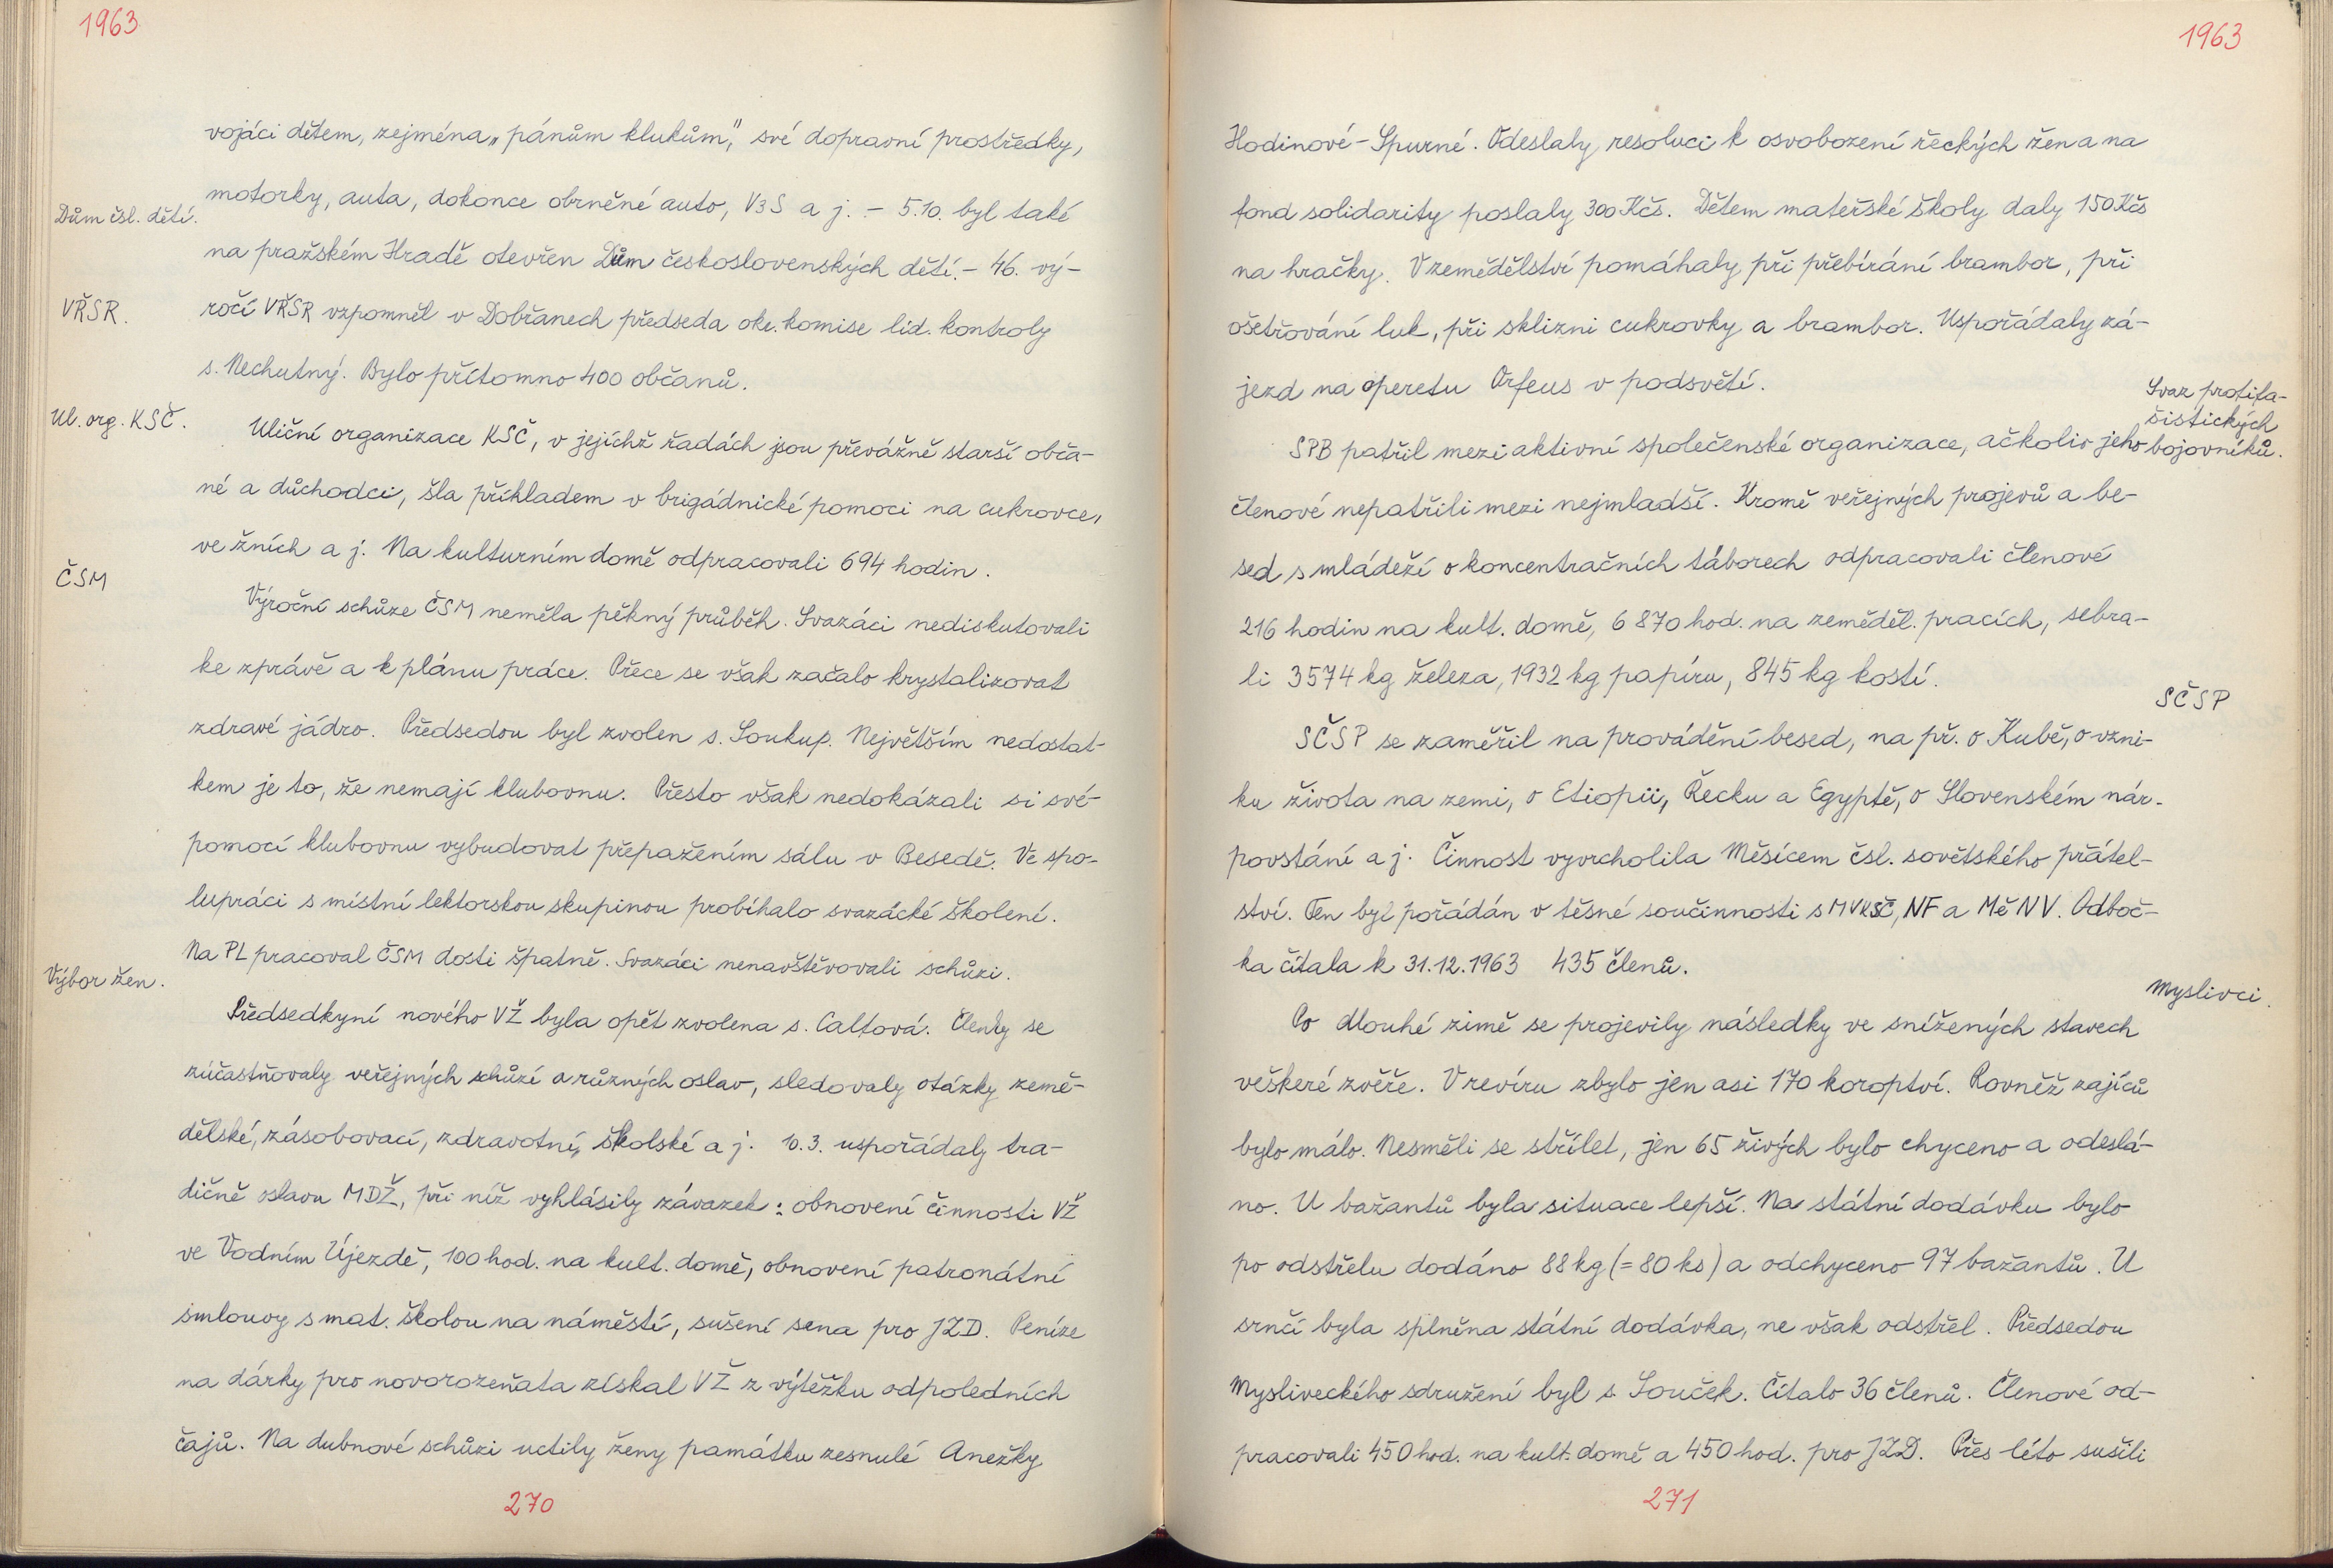 1963
vojáci dětem, zejména „pánům klukům", své dopravní prostředky,
Dům čsl. dětí.
motorky, auta, dokonce obrněné auto, V3S a j. – 5.10. byl také
na pražském Hradě otevřen Dům československých dětí. – 46. vý-
VŘSR.
ročí VŘSR vzpomněl v Dobřanech předseda okr. komise lid. kontroly
s. Nechutný. Bylo přítomno 400 občanů.
Ul. org. KSČ.
Uliční organizace KSČ, v jejíchž řadách jsou převážně starší obča-
né a důchodci, šla příkladem v brigádnické pomoci na cukrovce,
ve žních a j. Na kulturním domě odpracovali 694 hodin.
ČSM
Výroční schůze ČSM neměla pěkný průběh. Svazáci nediskutovali
ke zprávě a k plánu práce. Přece se však začalo krystalizovat
zdravé jádro. Předsedou byl zvolen s. Soukup. Největším nedostat-
kem je to, že nemají klubovnu. Přesto však nedokázali si své-
pomocí klubovnu vybudovat přepažením sálu v Besedě. Ve spo-
lupráci s místní lektorskou skupinou probíhalo svazácké školení.
Na PL pracoval ČSM dosti špatně. Svazáci nenavštěvovali schůzi.
Výbor žen.
Předsedkyní nového VŽ byla opět zvolena s. Caltová. Členky se
zúčastňovaly veřejných schůzí a různých oslav, sledovaly otázky země-
dělské, zásobovací, zdravotní, školské a j. 10.3. uspořádaly tra-
dičně oslavu MDŽ, při níž vyhlásily závazek: obnovení činnosti VŽ
ve Vodním Újezdě, 100 hod. na kult. domě, obnovení patronátní
smlouvy s mat. školou na náměstí, sušení sena pro JZD. Peníze
na dárky pro novorozeňata získal VŽ z výtěžku odpoledních
čajů. Na dubnové schůzi uctily ženy památku zesnulé Anežky
270
1963
Hodinové-Spurné. Odeslaly resoluci k osvobození řeckých žen a na
fond solidarity poslaly 300 Kčs. Dětem mateřské školy daly 150 Kčs
na hračky. V zemědělství pomáhaly při přebírání brambor, při
ošetřování luk, při sklizni cukrovky a brambor. Uspořádaly zá-
jezd na operetu Orfeus v podsvětí.
Svaz protifa-
šistických
bojovníků.
SPB patřil mezi aktivní společenské organizace, ačkoliv jeho
členové nepatřili mezi nejmladší. Kromě veřejných projevů a be-
sed s mládeží o koncentračních táborech odpracovali členové
216 hodin na kult. domě, 6 870 hod. na zeměděl. pracích, sebra-
li 3574 kg železa, 1932 kg papíru, 845 kg kostí.
SČSP
SČSP se zaměřil na provádění besed, na př. o Kubě, o vzni-
ku života na zemi, o Etiopii, Řecku a Egyptě, o Slovenském nár.
povstání a j. Činnost vyvrcholila Měsícem čsl. sovětského přátel-
ství. Ten byl pořádán v těsné součinnosti s MVKSČ, NF a MěNV. Odboč-
ka čítala k 31.12.1963 435 členů.
Myslivci.
Po dlouhé zimě se projevily následky ve snížených stavech
veškeré zvěře. V revíru zbylo jen asi 170 koroptví. Rovněž zajíců
bylo málo. Nesměli se střílet, jen 65 živých bylo chyceno a odeslá-
no. U bažantů byla situace lepší. Na státní dodávku bylo
po odstřelu dodáno 88 kg (= 80 ks) a odchyceno 97 bažantů. U
srnčí byla splněna státní dodávka, ne však odstřel. Předsedou
Mysliveckého sdružení byl s. Souček. Čítalo 36 členů. Členové od-
pracovali 450 hod. na kult. domě a 450 hod. pro JZD. Přes léto sušili
271